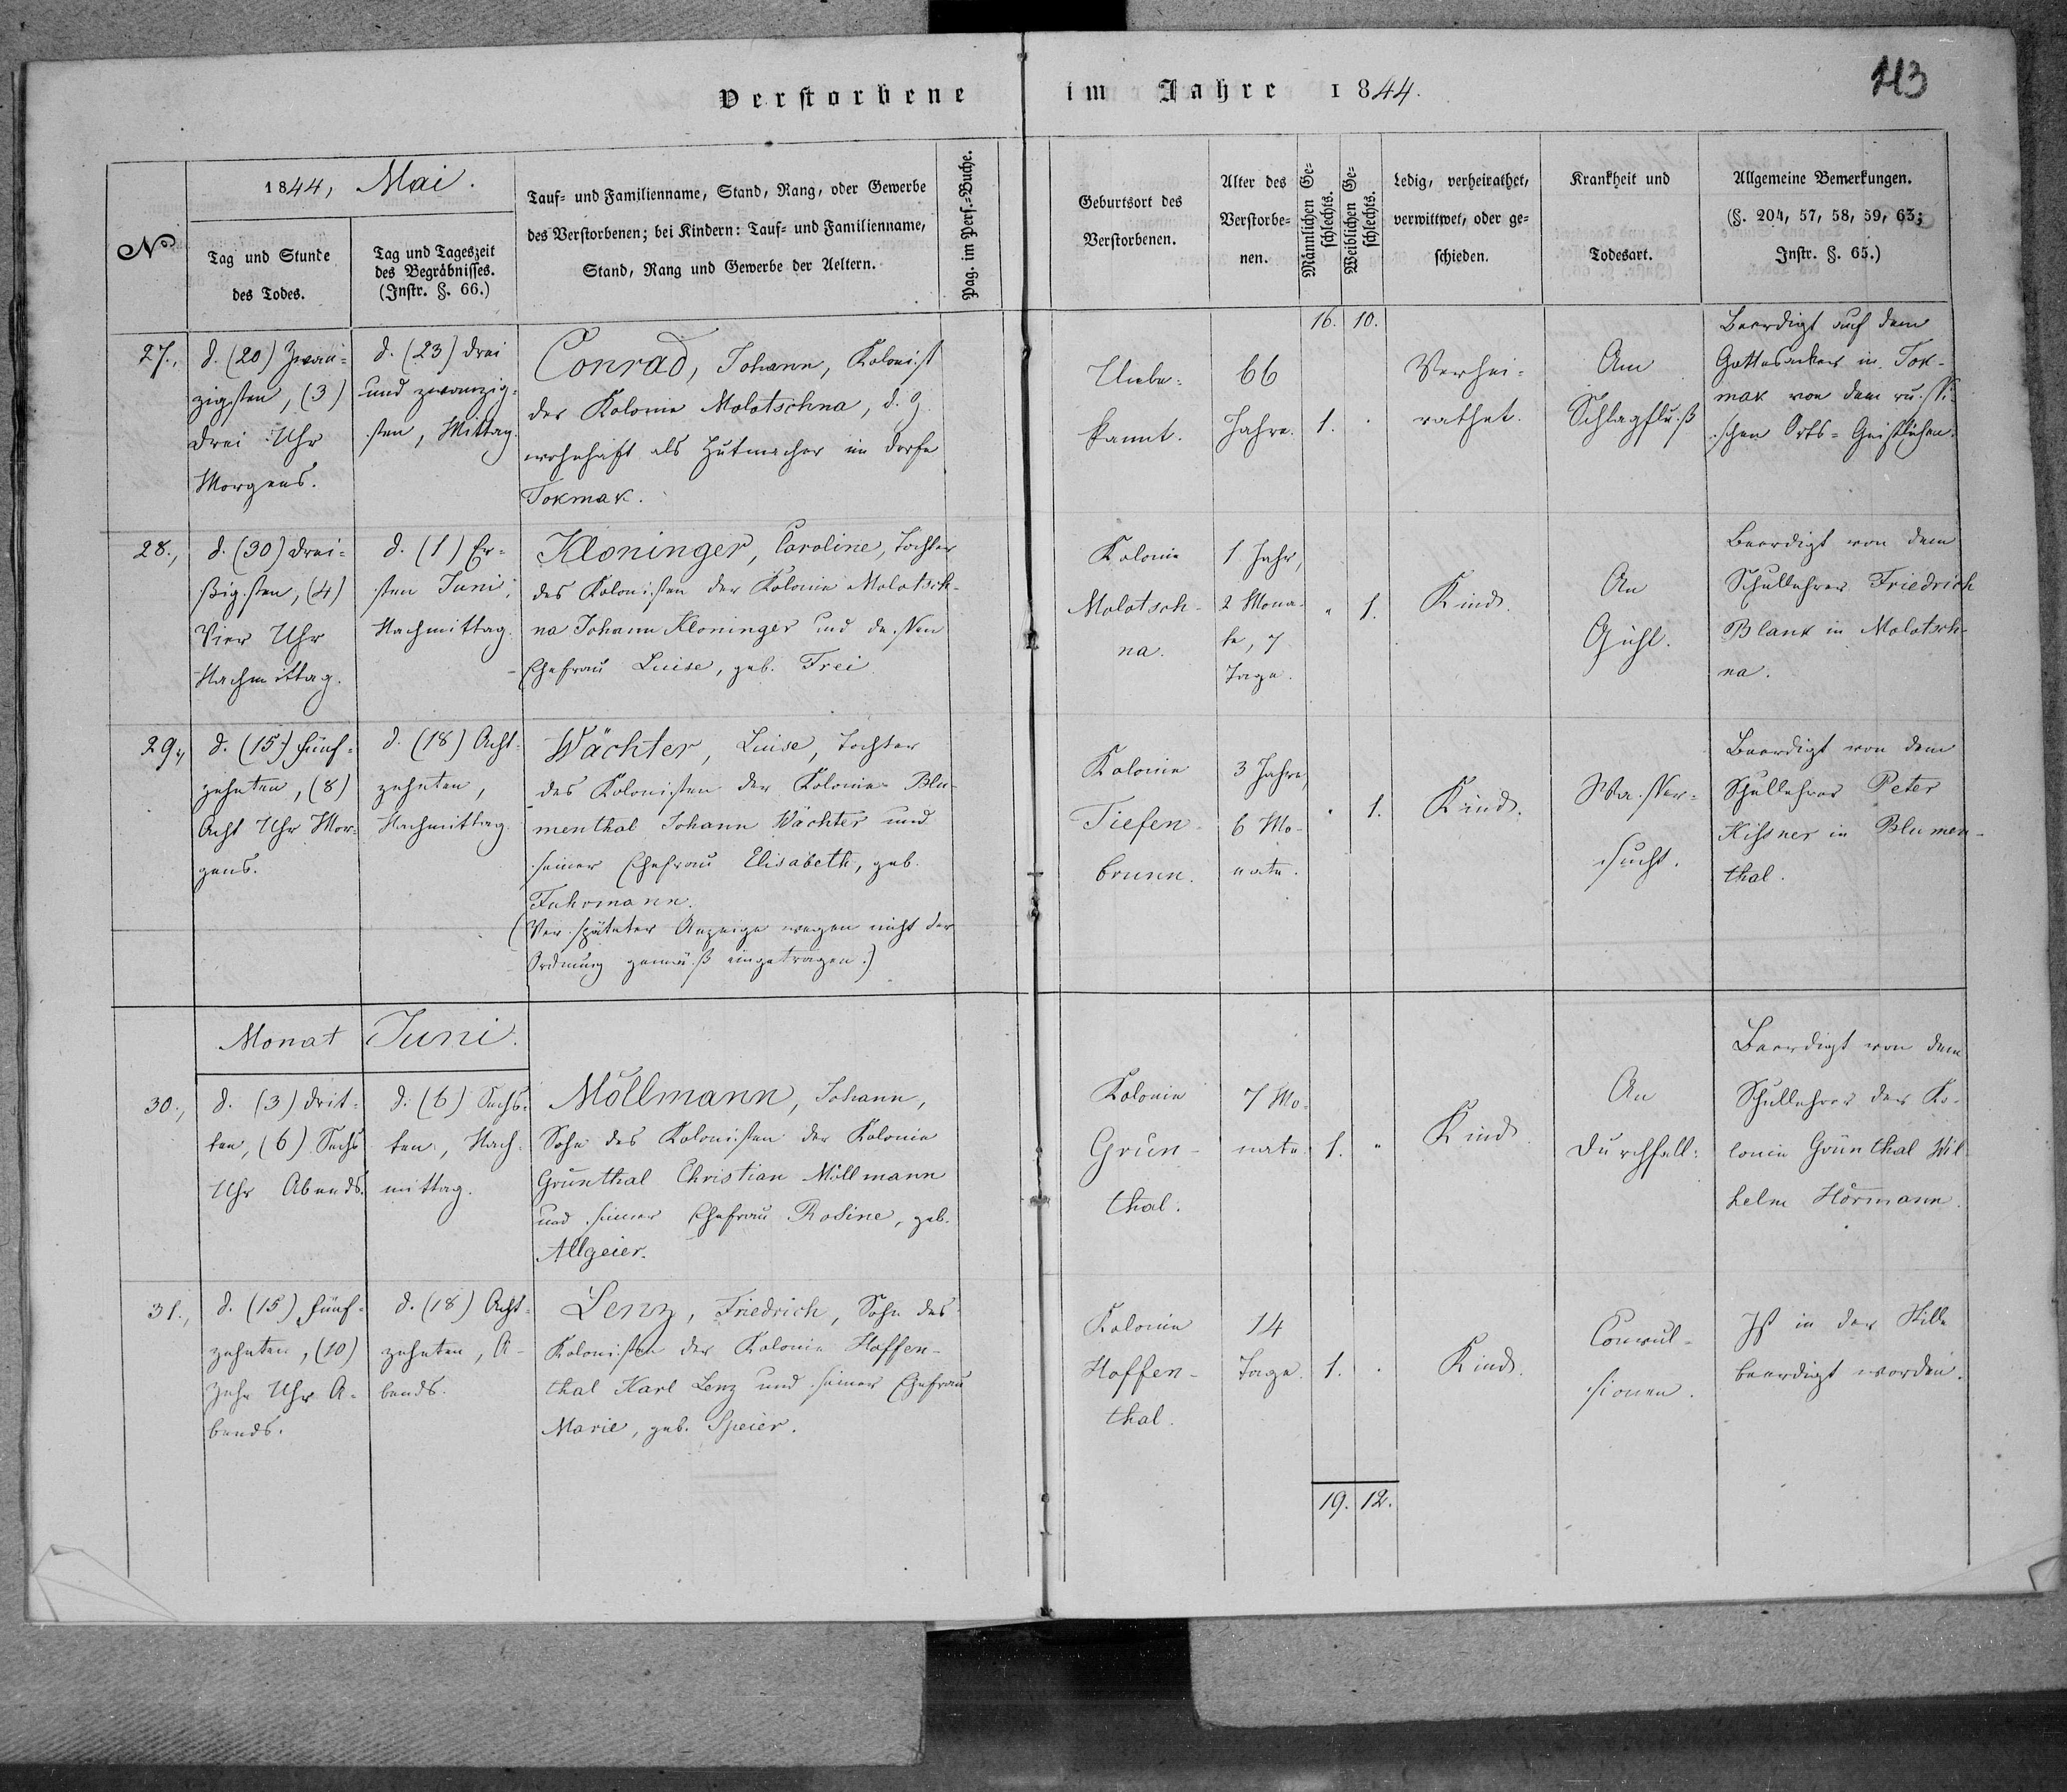 Verstorbene im Jahre 1844.
113
№
1844, Mai.
Tag und Stunde
des Todes.
Tag und Tageszeit
des Begräbnisses.
(Instr. §. 66.)
Tauf- und Familienname, Stand, Rang, oder Gewerbe
des Verstorbenen; bei Kindern: Tauf- und Familienname,
Stand, Rang und Gewerbe der Aeltern.
Pag. im Pers.-Buche.
Geburtsort des
Verstorbenen.
Alter des
Verstorbe-
nen.
Männlichen Ge-
schlechts.
Weiblichen Ge-
schlechts.
Ledig, verheirathet,
verwittwet, oder ge-
schieden.
Krankheit und
Todesart.
Allgemeine Bemerkungen.
(§. 204, 57, 58, 59, 63;
Instr. §. 65.)
16. 10.
27.,
d. (20) Zwan-
zigsten, (3)
Drei Uhr
Morgens.
d. (23) Drei
und zwanzig-
sten, Mittag.
Conrad, Johann, Kolonist
der Kolonie Molotschna, d. Z.
wohnhaft als Hutmacher im Dorfe
Tokmak.
Unbe-
kannt.
66
Jahre.
1.
Verhei-
rathet.
Am
Schlagfluß
Beerdigt auf dem
Gottesacker in Tok-
mak von dem russi-
schen Orts-Geistlichen.
28.,
d. (30) Drei-
ßigsten, (4)
Vier Uhr
Nachmittag.
d. (1) Er-
sten Juni,
Nachmittag.
Kloninger, Caroline, Tochter
des Kolonisten der Kolonie Molotsch-
na Johann Kloninger und dessen
Ehefrau Luise, geb. Frei.
Kolonie
Molotsch-
na.
1 Jahr,
2 Mona-
te, 7
Tage.
" 1.
Kind.
An
Gicht.
Beerdigt von dem
Schullehrer Friedrich
Blank in Molotsch-
na.
29.,
d. (15) Fünf-
zehnten, (8)
Acht Uhr Mor-
gens.
d. (18) Acht-
zehnten,
Nachmittag.
Wächter, Luise, Tochter
des Kolonisten der Kolonie Blu-
menthal Johann Wächter und
seiner Ehefrau Elisabeth, geb.
Fuhrmann.
(Verspäteter Anzeige wegen nicht der
Ordnung gemäß eingetragen.)
Kolonie
Tiefen-
brunn.
3 Jahre,
6 Mo-
nate.
" 1.
Kind.
Wasser-
sucht.
Beerdigt von dem
Schullehrer Peter
Kissner in Blumen-
thal.
Monat Juni.
30.,
d. (3) Drit-
ten, (6) Sechs
Uhr Abends.
d. (6) Sechs-
ten, Nach-
mittag.
Möllmann, Johann,
Sohn des Kolonisten der Kolonie
Grünthal Christian Möllmann
und seiner Ehefrau Rosine, geb.
Allgeier.
Kolonie
Grün-
thal.
7 Mo-
nate.
1. "
Kind.
An
Durchfall.
Beerdigt von dem
Schullehrer der Ko-
lonie Grünthal Wil-
helm Hörmann.
31.,
d. (15) Fünf-
zehnten, (10)
Zehn Uhr A-
bends.
d. (18) Acht-
zehnten, A-
bends.
Lenz, Friedrich, Sohn des
Kolonisten der Kolonie Hoffen-
thal Karl Lenz und seiner Ehefrau
Marie, geb. Speier.
Kolonie
Hoffen-
thal.
14
Tage.
1.
Kind.
Convul-
sionen.
Ist in der Stille
beerdigt worden.
19. 12.